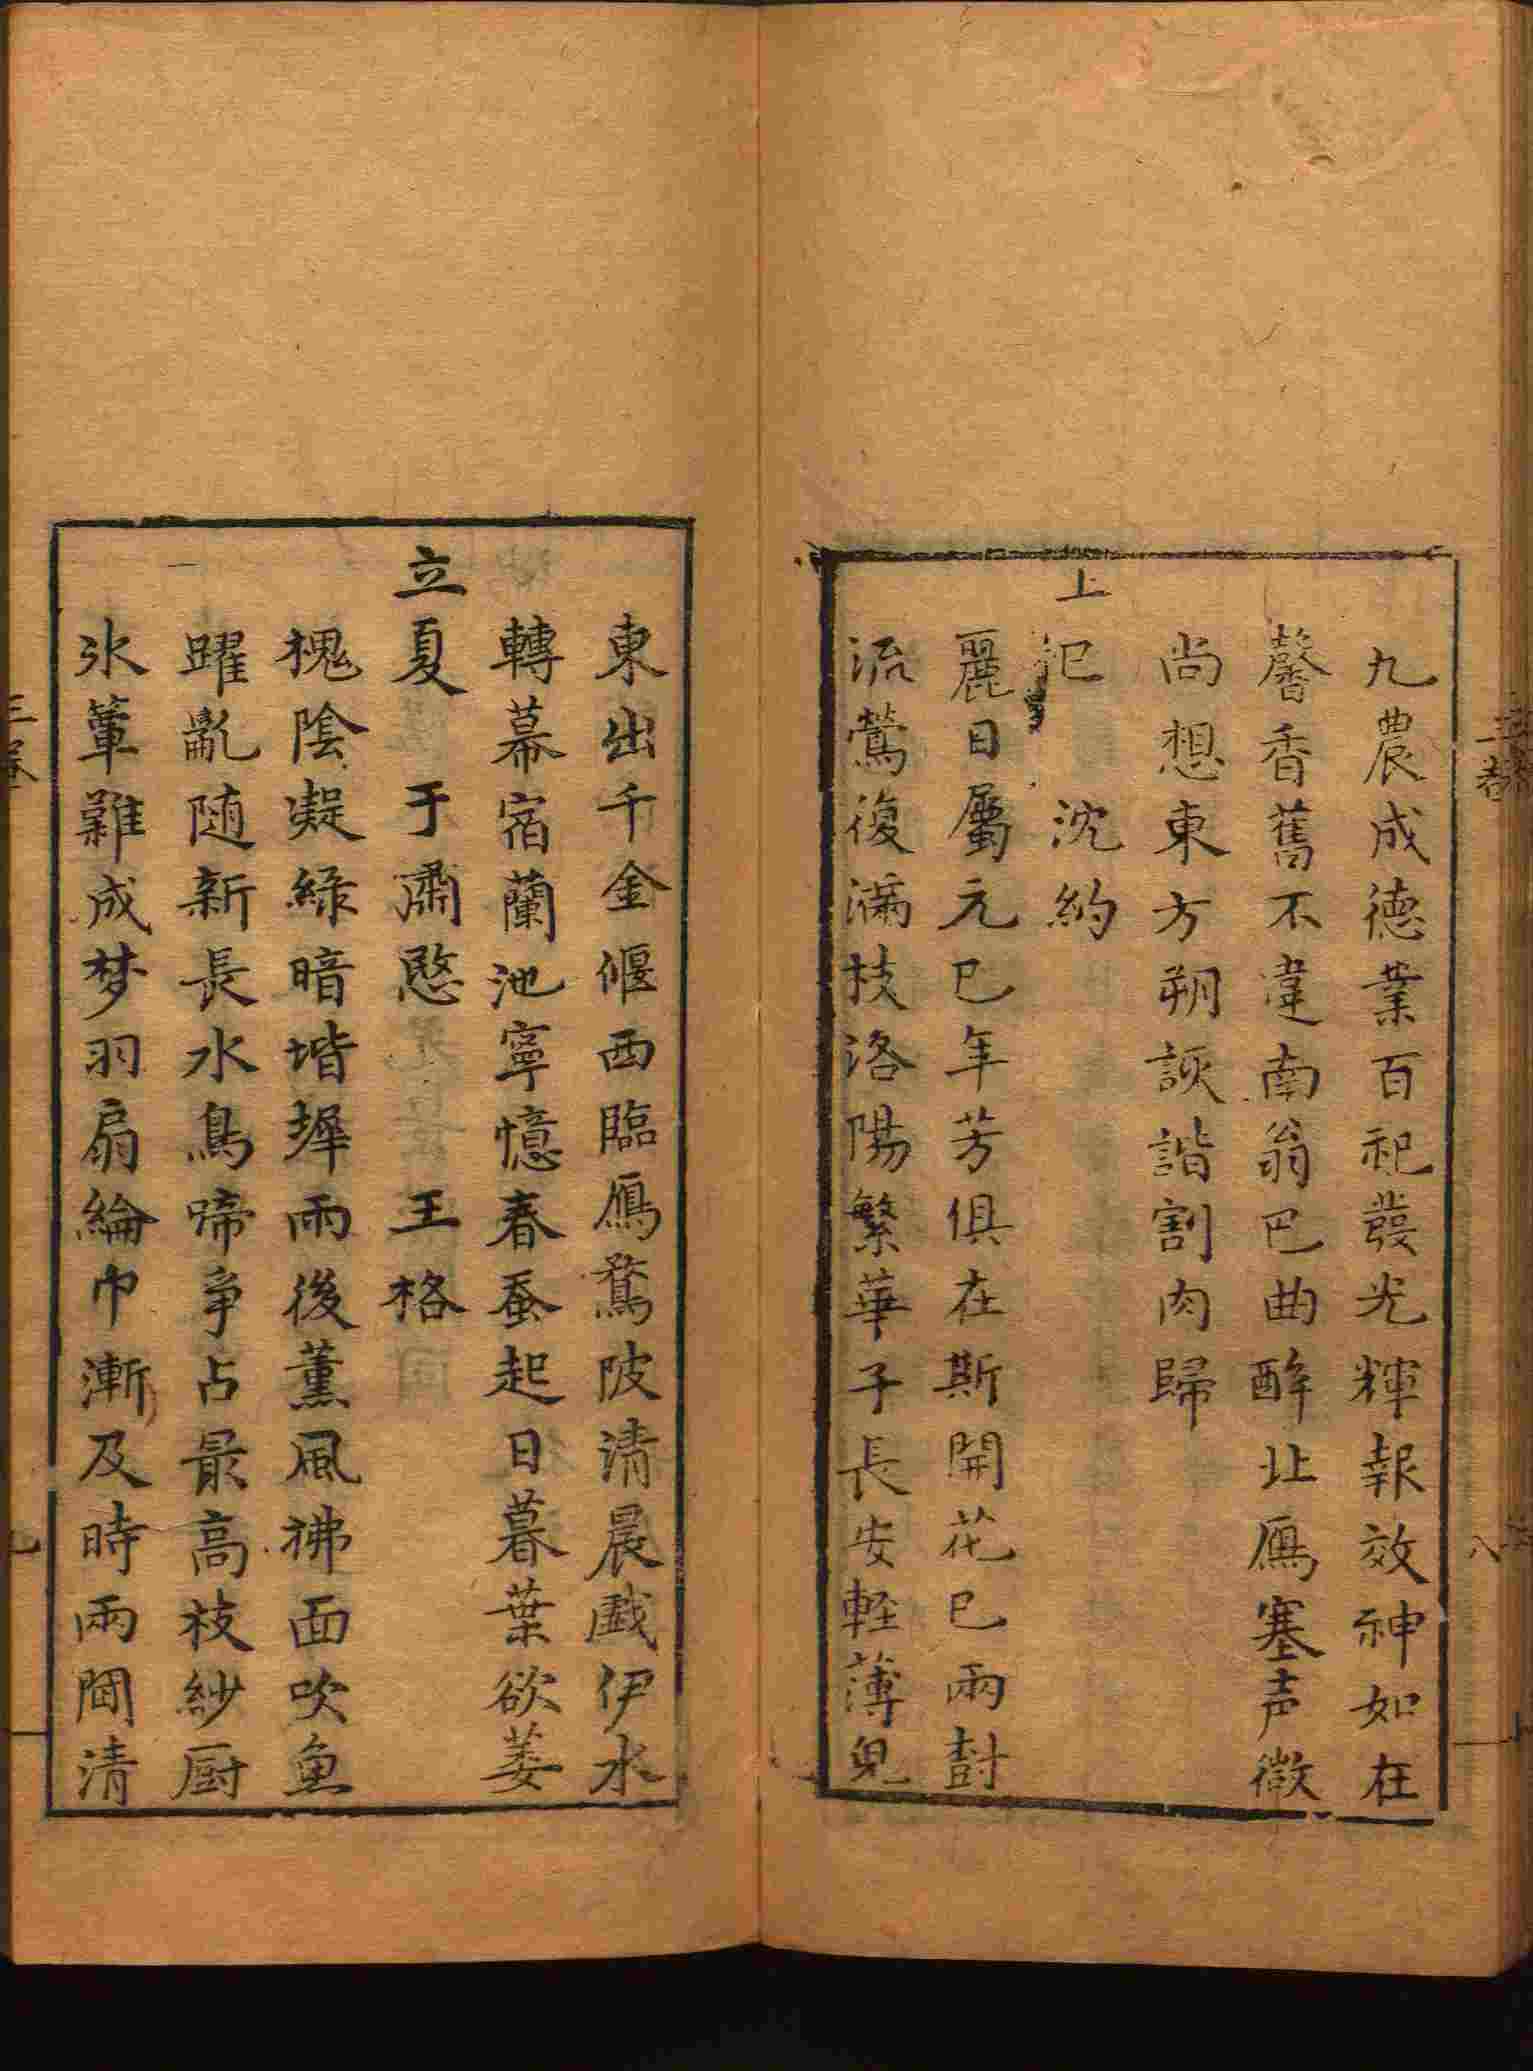 九農成德業百祀發光輝報效神如在
馨香舊不違南翁巴曲醉北鴈塞声微
尚想東方朔詼諧割肉歸
上巳 沈約
麗日屬元巳年芳俱在斯開花已兩封
流鶯復滿枝洛陽繁華子長安軽薄兒
東出千金偃西臨鴈鶩陂清晨戲伊水
轉幕宿蘭池寧憶春蚕起日暮葉欲萎
立夏 于肅愍 王格
槐陰凝綠暗堦墀雨後薫風拂面吹魚
躍亂随新長水鳥啼争占最高枝紗厨
氷簟難成梦羽扇綸巾漸及時雨閣清
三卷
八